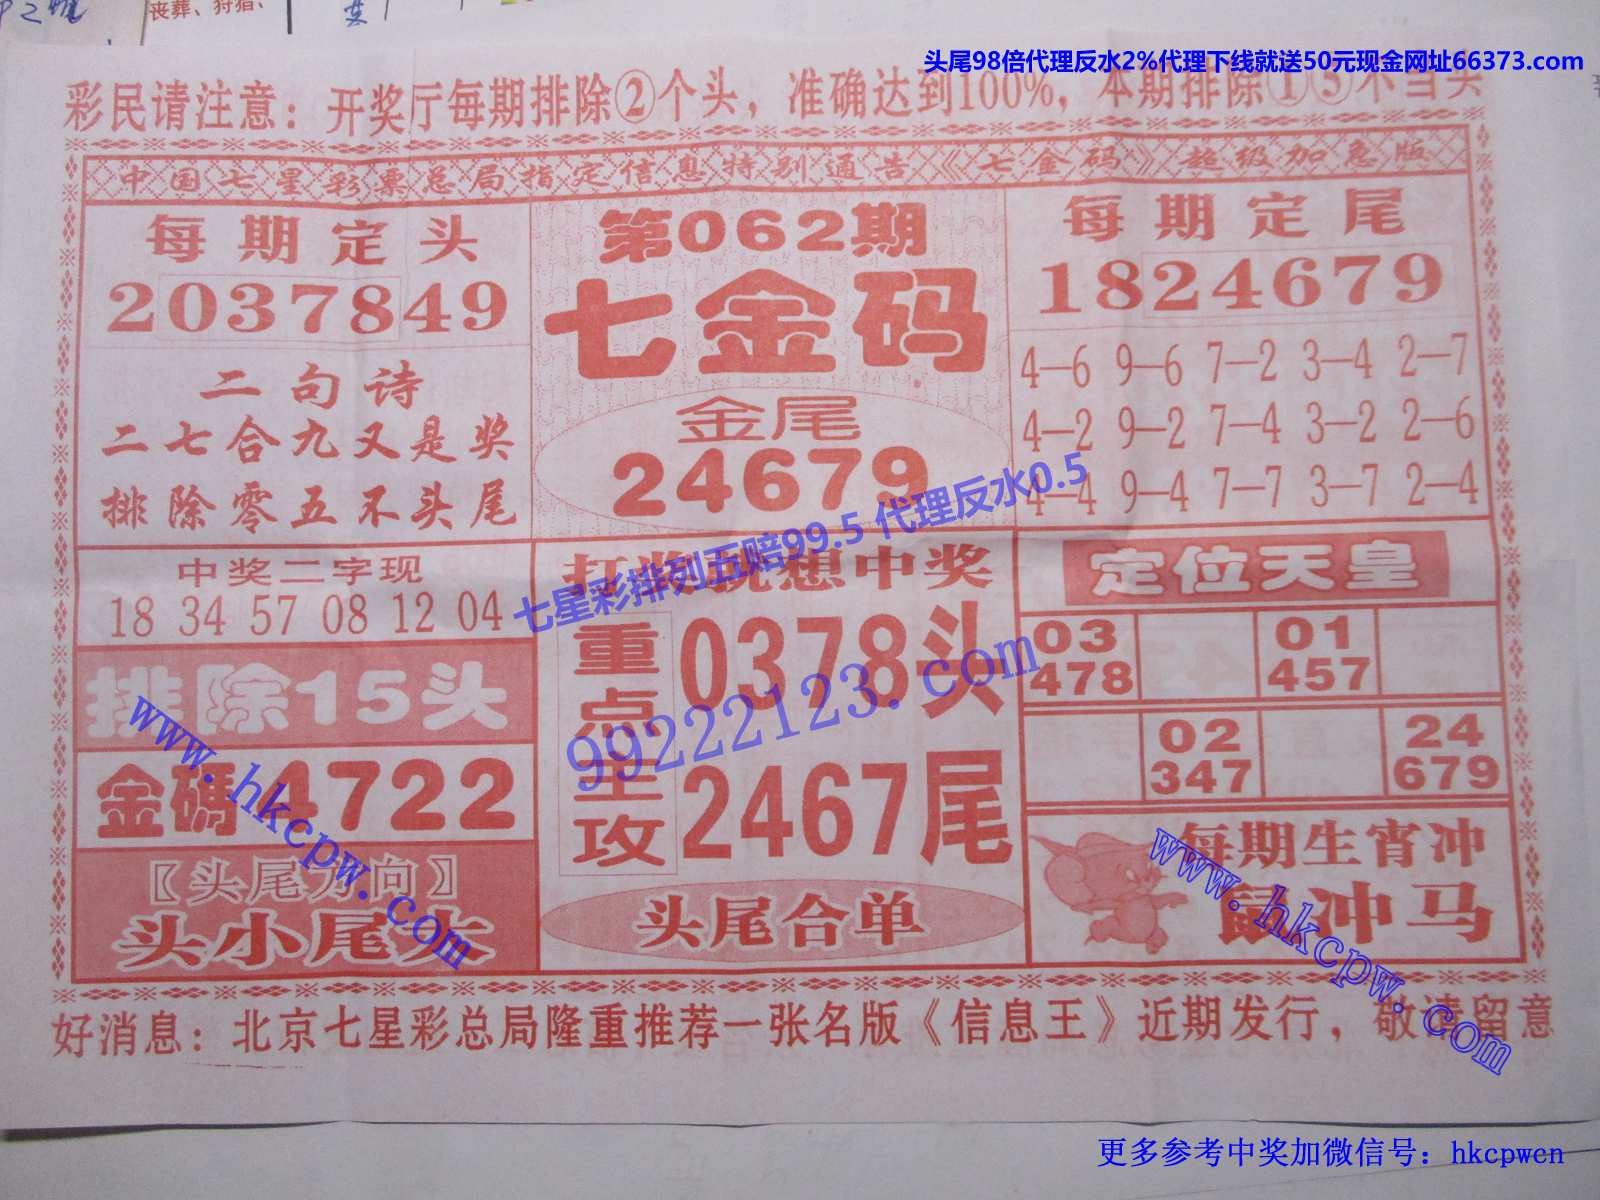 丧葬、狩猎、
头尾98倍代理反水2%代理下线就送50元现金网址66373.com
彩民请注意：开奖厅每期排除②个头，准确达到100%，本期排除①⑤不当头
中国七星彩票总局指定信息特别通告《七金码》超级加急版
每期定头
2037849
二句诗
二七合九又是奖
排除零五不头尾
中奖二字现
18 34 57 08 12 04
排除15头
金碼4722
〖头尾方向〗
头小尾大
第062期
七金码
金尾
24679
七星彩排列五赔99.5 代理反水0.5
想中奖
重点主攻
0378头
2467尾
99222123.com
头尾合单
每期定尾
1824679
4—6 9—6 7—2 3—4 2—7
4—2 9—2 7—4 3—2 2—6
4—4 9—4 7—7 3—7 2—4
定位天皇
03 01
478 457
02 24
347 679
每期生宵冲
鼠冲马
www.hkcpw.com
www.hkcpw.com
好消息：北京七星彩总局隆重推荐一张名版《信息王》近期发行，敬请留意
更多参考中奖加微信号：hkcpwcn